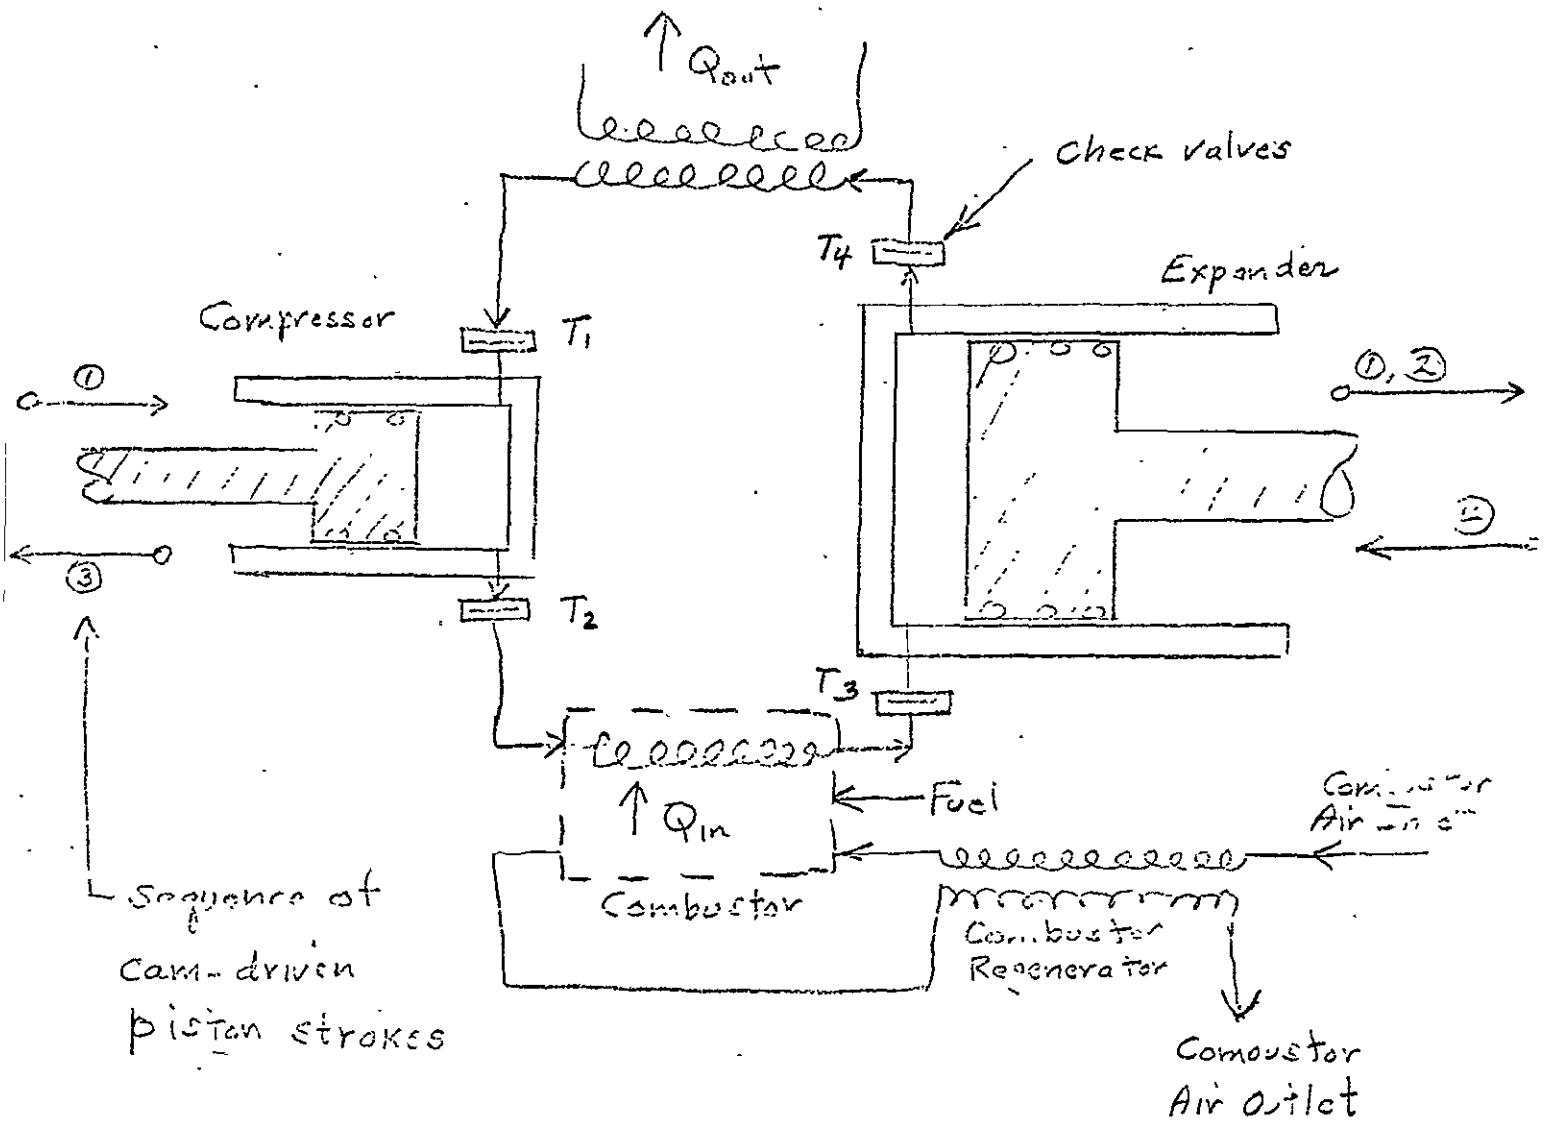 Qout
Check valves
T4
Expander
Compressor
T1
①
①, ②
③
T2
T3
Fuel
Qin
Air
Combustor
Sequence of
Cam-driven
piston strokes
Combustor
Regenerator
Comoustor
Air Outlet